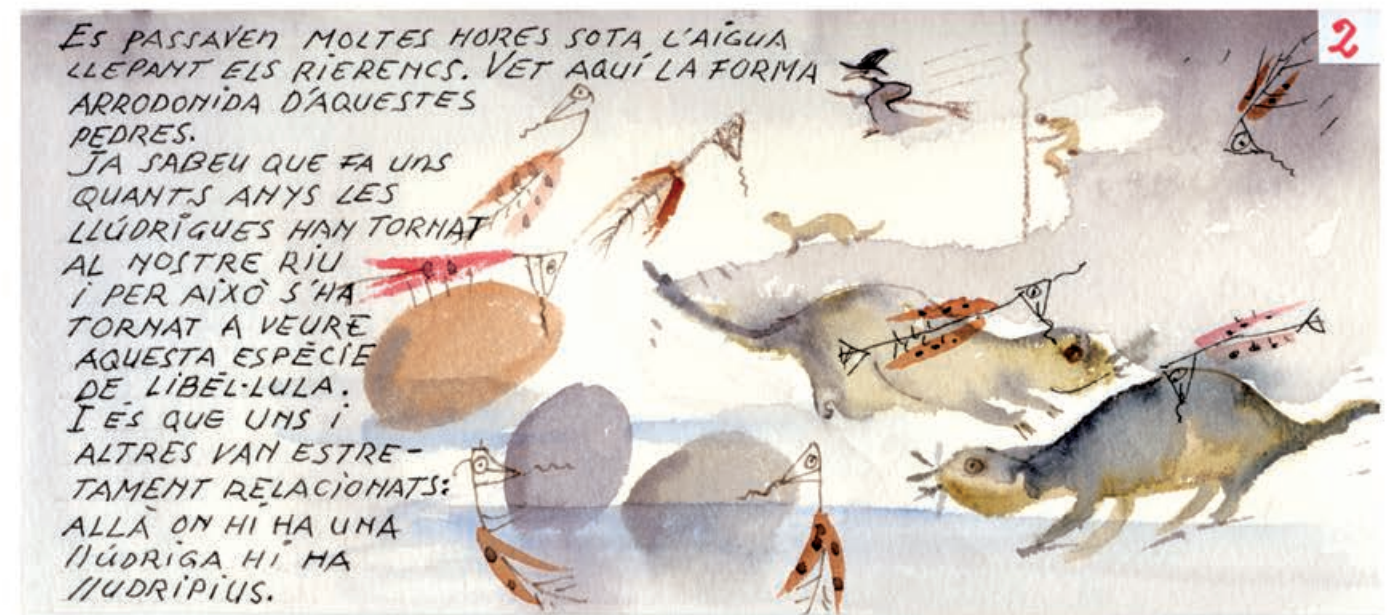 ES PASSAVEN MOLTES HORES SOTA L'AIGUA
LLEPANT ELS RIERENCS. VET AQUÍ LA FORMA
ARRODONIDA D'AQUESTES
PEDRES.
JA SABEU QUE FA UNS
QUANTS ANYS LES
LLÚDRIGUES HAN TORNAT
AL NOSTRE RIU
I PER AIXÒ S'HA
TORNAT A VEURE
AQUESTA ESPÈCIE
DE LIBÈL·LULA.
I ÉS QUE UNS I
ALTRES VAN ESTRE-
TAMENT RELACIONATS:
ALLÀ ON HI HA UNA
llÚDRIGA HI HA
llUDRIPIUS.
2